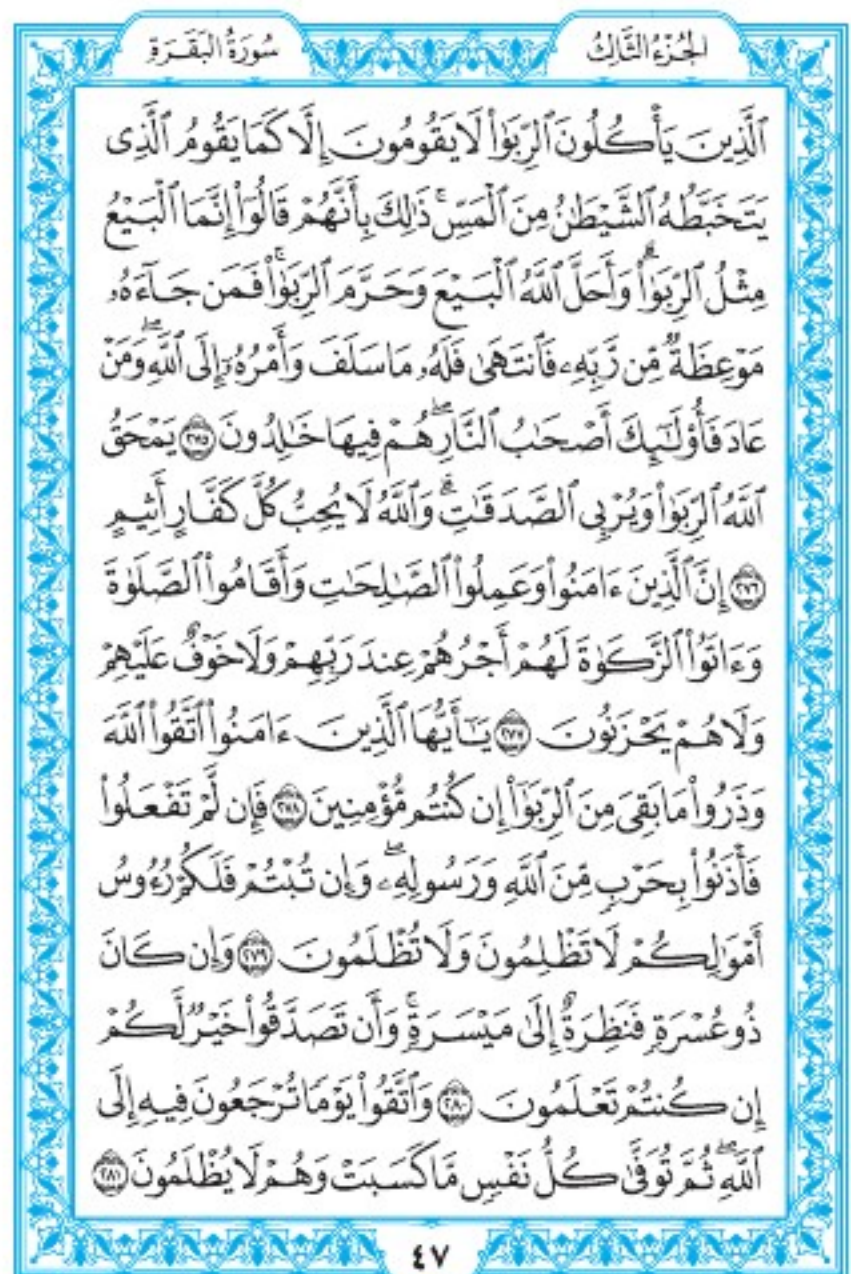 الجُزْءُ الثَّالِثُ
سُورَةُ البَقَرَةِ
ٱلَّذِينَ يَأْكُلُونَ ٱلرِّبَوٰا۟ لَا يَقُومُونَ إِلَّا كَمَا يَقُومُ ٱلَّذِى
يَتَخَبَّطُهُ ٱلشَّيْطَٰنُ مِنَ ٱلْمَسِّ ۚ ذَٰلِكَ بِأَنَّهُمْ قَالُوٓا۟ إِنَّمَا ٱلْبَيْعُ
مِثْلُ ٱلرِّبَوٰا۟ ۗ وَأَحَلَّ ٱللَّهُ ٱلْبَيْعَ وَحَرَّمَ ٱلرِّبَوٰا۟ ۚ فَمَن جَآءَهُۥ
مَوْعِظَةٌ مِّن رَّبِّهِۦ فَٱنتَهَىٰ فَلَهُۥ مَا سَلَفَ وَأَمْرُهُۥٓ إِلَى ٱللَّهِ ۖ وَمَنْ
عَادَ فَأُو۟لَٰٓئِكَ أَصْحَٰبُ ٱلنَّارِ ۖ هُمْ فِيهَا خَٰلِدُونَ ٢٧٥ يَمْحَقُ
ٱللَّهُ ٱلرِّبَوٰا۟ وَيُرْبِى ٱلصَّدَقَٰتِ ۗ وَٱللَّهُ لَا يُحِبُّ كُلَّ كَفَّارٍ أَثِيمٍ
٢٧٦ إِنَّ ٱلَّذِينَ ءَامَنُوا۟ وَعَمِلُوا۟ ٱلصَّٰلِحَٰتِ وَأَقَامُوا۟ ٱلصَّلَوٰةَ
وَءَاتَوُا۟ ٱلزَّكَوٰةَ لَهُمْ أَجْرُهُمْ عِندَ رَبِّهِمْ وَلَا خَوْفٌ عَلَيْهِمْ
وَلَا هُمْ يَحْزَنُونَ ٢٧٧ يَٰٓأَيُّهَا ٱلَّذِينَ ءَامَنُوا۟ ٱتَّقُوا۟ ٱللَّهَ
وَذَرُوا۟ مَا بَقِىَ مِنَ ٱلرِّبَوٰٓا۟ إِن كُنتُم مُّؤْمِنِينَ ٢٧٨ فَإِن لَّمْ تَفْعَلُوا۟
فَأْذَنُوا۟ بِحَرْبٍ مِّنَ ٱللَّهِ وَرَسُولِهِۦ ۖ وَإِن تُبْتُمْ فَلَكُمْ رُءُوسُ
أَمْوَٰلِكُمْ لَا تَظْلِمُونَ وَلَا تُظْلَمُونَ ٢٧٩ وَإِن كَانَ
ذُو عُسْرَةٍ فَنَظِرَةٌ إِلَىٰ مَيْسَرَةٍ ۚ وَأَن تَصَدَّقُوا۟ خَيْرٌ لَّكُمْ
إِن كُنتُمْ تَعْلَمُونَ ٢٨٠ وَٱتَّقُوا۟ يَوْمًا تُرْجَعُونَ فِيهِ إِلَى
ٱللَّهِ ۖ ثُمَّ تُوَفَّىٰ كُلُّ نَفْسٍ مَّا كَسَبَتْ وَهُمْ لَا يُظْلَمُونَ ٢٨١
٤٧